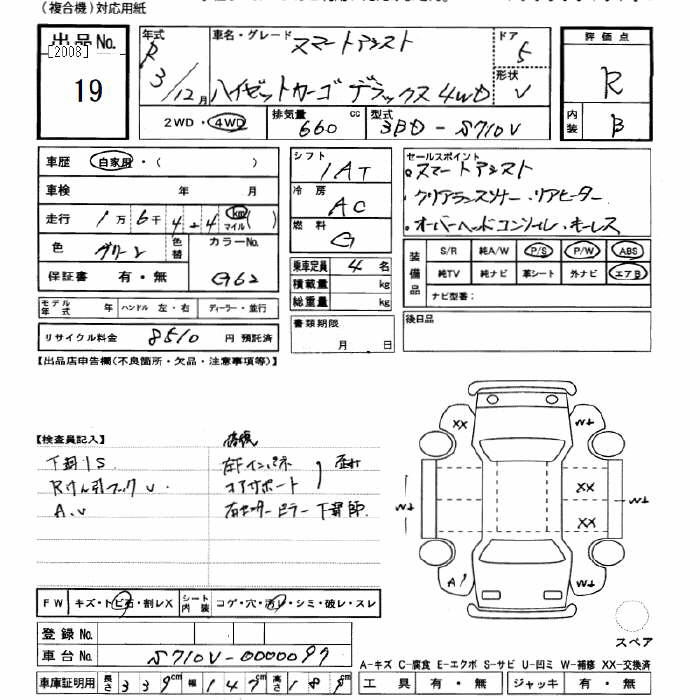 (複合機)対応用紙
出品No. 年式 車名・グレード スマートアシスト ドア 5 評価点
[2008]
19 R3/12月 ハイゼットカーゴ デラックス 4WD 形状 V R
2WD・4WD 排気量 660 cc 型式 3BD-S710V 内装 B
車歴 自家用・( ) シフト 1AT セールスポイント
・スマートアシスト
車検 年 月 冷房 AC ・クリアランスソナー・リアヒーター
走行 1万6千4 4 km マイル ( ) 燃料 G ・オーバーヘッドコンソール・キーレス
色 グリーン 色替 カラーNo. G62
乗車定員 4名 装備品 S/R 純A/W P/S P/W ABS
保証書 有・無 積載量 kg 純TV 純ナビ 革シート 外ナビ エアB
総重量 kg ナビ型番:
モデル年式 年 ハンドル 左・右 ディーラー・並行 書類期限 月 日 後日品
リサイクル料金 8510 円 預託済
【出品店申告欄(不良箇所・欠品・注意事項等)】
【検査員記入】 修復
下廻りS 左F インパネ
Rけん引フック V コアサポート
A.V 右センターピラー下部
XX W
W XX W
XX
A W
FW キズ・トビ石・割レX シート内装 コゲ・穴・汚レ・シミ・破レ・スレ
登録No.
スペア
車台No. S710V-0000097
A-キズ C-腐食 E-エクボ S-サビ U-凹ミ W-補修 XX-交換済
車庫証明用 長さ 339cm 幅 147cm 高さ 189cm 工具 有・無 ジャッキ 有・無